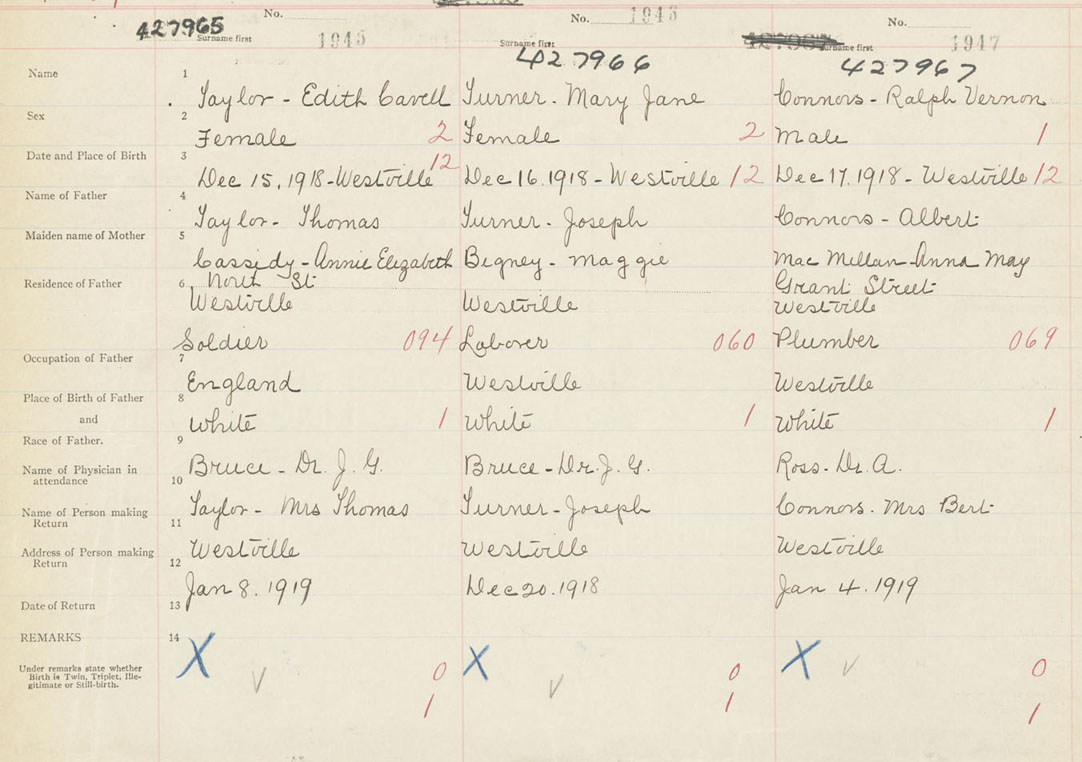 No. No. 1946 No.
427965 Surname first 1945 Surname first 427966 Surname first 1947 427967
Name 1 Taylor - Edith Cavell Turner - Mary Jane Connors - Ralph Vernon
Sex 2 Female 2 Female 2 Male 1
Date and Place of Birth 3 Dec 15, 1918 - Westville 12 Dec 16, 1918 - Westville 12 Dec 17, 1918 - Westville 12
Name of Father 4 Taylor - Thomas Turner - Joseph Connors - Albert
Maiden name of Mother 5 Cassidy - Annie Elizabeth Bigney - Maggie Mac Millan - Anna May
Residence of Father 6 North St Westville Westville Grant Street Westville
Soldier 094 Laborer 060 Plumber 069
Occupation of Father 7
England Westville Westville
Place of Birth of Father 8
and White 1 White 1 White 1
Race of Father. 9
Name of Physician in attendance 10 Bruce - Dr. J. G. Bruce - Dr. J. G. Ross - Dr. A.
Name of Person making Return 11 Taylor - Mrs Thomas Turner - Joseph Connors - Mrs Bert
Address of Person making Return 12 Westville Westville Westville
Date of Return 13 Jan 8. 1919 Dec 20. 1918 Jan 4. 1919
REMARKS 14 X X X
Under remarks state whether Birth is Twin, Triplet, Ille-
gitimate or Still-birth.
0 0 0
1 1 1